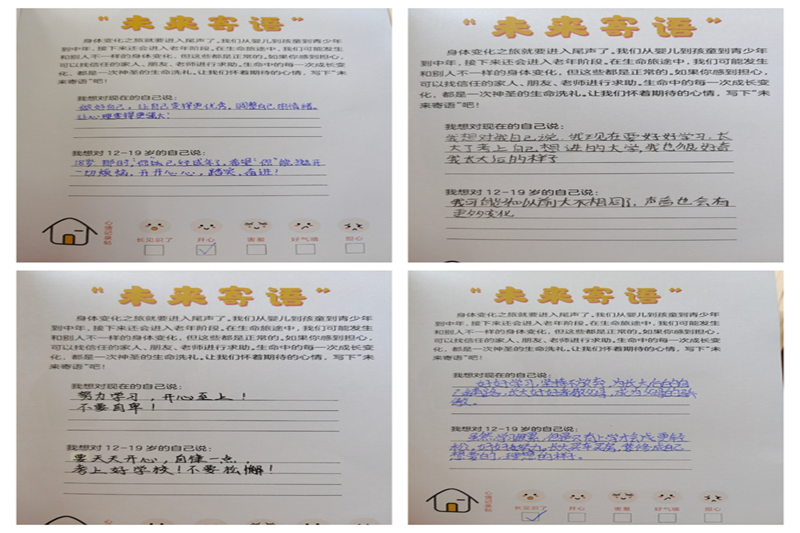 “未来寄语”
身体变化之旅就要进入尾声了。我们从婴儿到孩童到青少年
到中年，接下来还会进入老年阶段。在生命旅途中，我们可能发生
和别人不一样的身体变化，但这些都是正常的。如果你感到担心，
可以找信任的家人、朋友、老师进行求助。生命中的每一次成长变
化，都是一次神圣的生命洗礼。让我们怀着期待的心情，写下“未
来寄语”吧！
我想对现在的自己说：
做好自己，让自己变得更优秀，调整自己的情绪，
让心理变得更强大！
我想对12-19岁的自己说：
那时，你已经成年了，希望你能抛开
一切烦恼，开开心心，踏实，奋进！
心情记录贴
长见识了
开心
害羞
好气哦
担心
“未来寄语”
身体变化之旅就要进入尾声了。我们从婴儿到孩童到青少年
到中年，接下来还会进入老年阶段。在生命旅途中，我们可能发生
和别人不一样的身体变化，但这些都是正常的。如果你感到担心，
可以找信任的家人、朋友、老师进行求助。生命中的每一次成长变
化，都是一次神圣的生命洗礼。让我们怀着期待的心情，写下“未
来寄语”吧！
我想对现在的自己说：
我想对我自己说，我现在要好好学习，长
大了考上自己想进的大学，我也很好奇
我长大后的样子
我想对12-19岁的自己说：
我可能和以前大不相同了，声音也会有
更多变化
“未来寄语”
身体变化之旅就要进入尾声了。我们从婴儿到孩童到青少年
到中年，接下来还会进入老年阶段。在生命旅途中，我们可能发生
和别人不一样的身体变化，但这些都是正常的。如果你感到担心，
可以找信任的家人、朋友、老师进行求助。生命中的每一次成长变
化，都是一次神圣的生命洗礼。让我们怀着期待的心情，写下“未
来寄语”吧！
我想对现在的自己说：
努力学习，开心至上！
不要自卑！
我想对12-19岁的自己说：
要天天开心，自律一点，
考上好学校！不要松懈！
“未来寄语”
身体变化之旅就要进入尾声了。我们从婴儿到孩童到青少年
到中年，接下来还会进入老年阶段。在生命旅途中，我们可能发生
和别人不一样的身体变化，但这些都是正常的。如果你感到担心，
可以找信任的家人、朋友、老师进行求助。生命中的每一次成长变
化，都是一次神圣的生命洗礼。让我们怀着期待的心情，写下“未
来寄语”吧！
我想对现在的自己说：
好好学习，坚持不放弃，为长大后的自
己，长大好好孝敬父母，成为父母的骄
傲。
我想对12-19岁的自己说：
虽然学习很累，但是只有上学才会
好好努力，长大，成自己
想要的，理想的样子。
心情记录贴
长见识了
开心
害羞
好气哦
担心